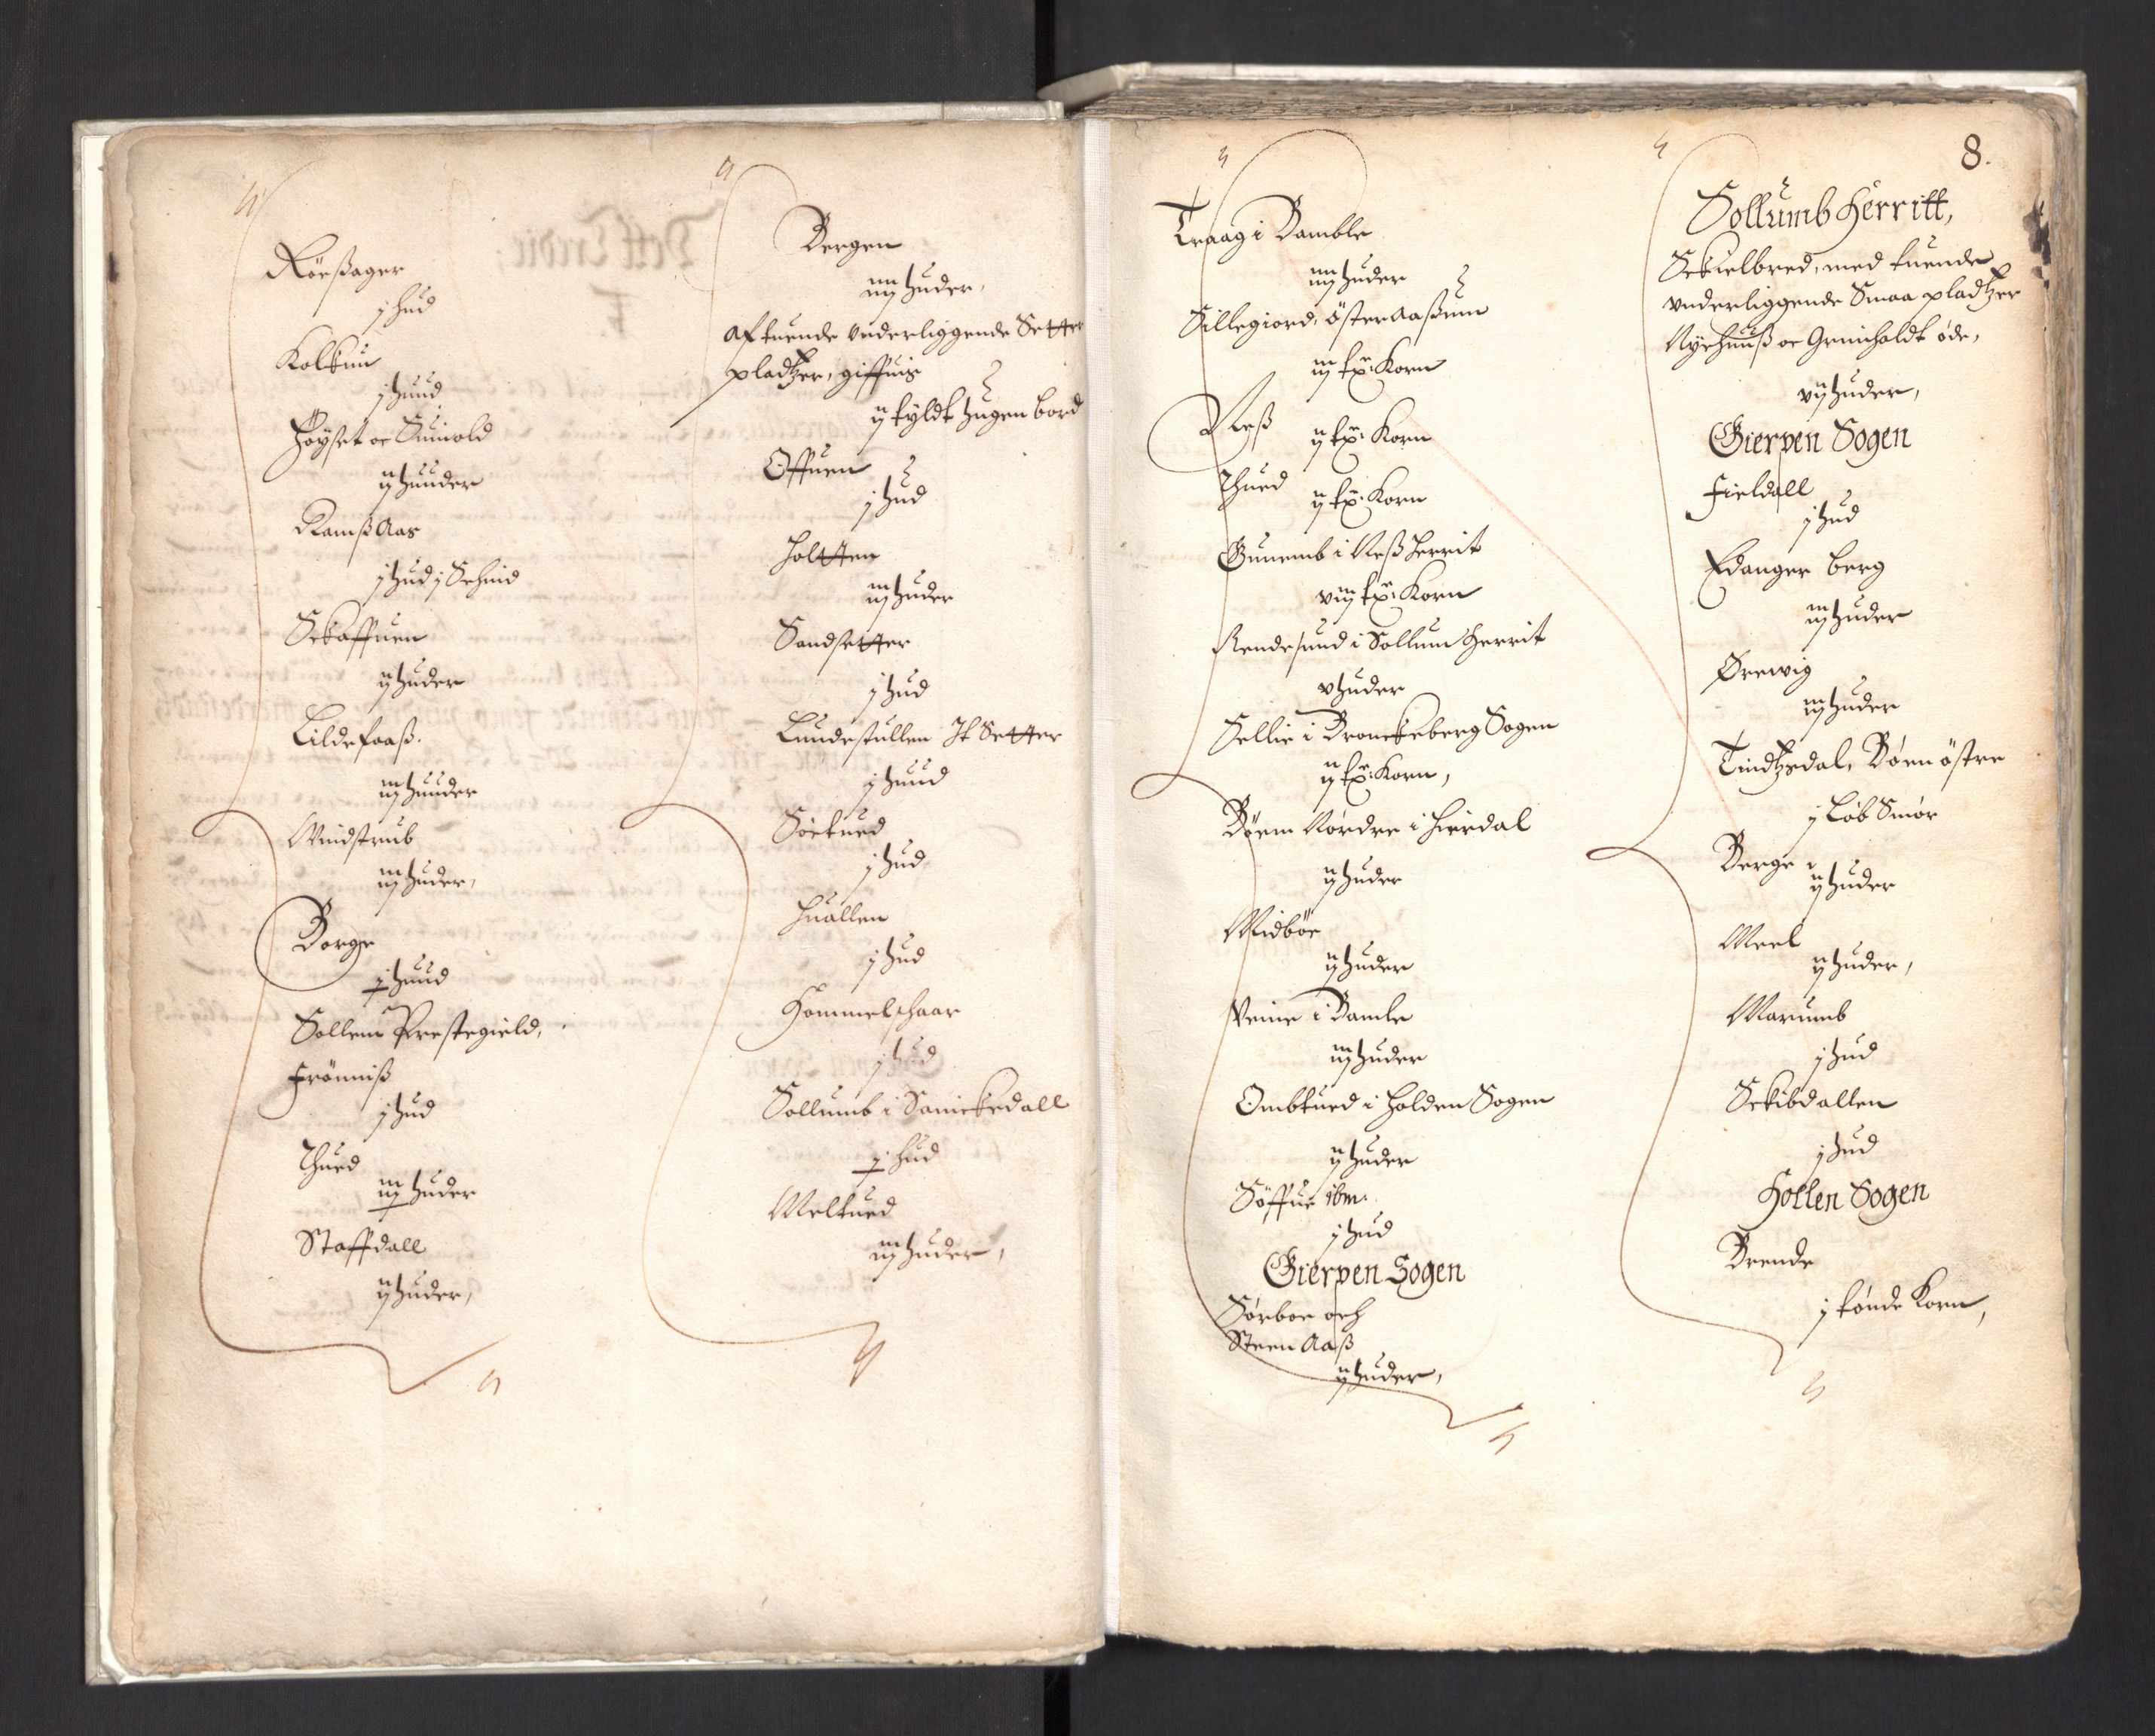 Rörßager
j hud
Kolkiin
j huud
Höyset oc Suinold
ij huuder
Ramß Aas
j hud j Schind
Schaffuen
ij huder
Lildefoß.
iij huuder
Windstrub
iij huder,
Borge
j huud
Sollem Prestegield,
Frönniß
j hud
Thued
iij huder
Staffdall
ij huder,
Bergen
iiij huder,
Af tuende vnderliggende Setter
pladtzer, giffuis
ij tyldt hugen bord
Offuen
j hud
Holtten
iij huder
Sandsetter
j hud
Lundestullen It Setter
j huud
Sörtued
j hud
Huallen
j hud
Hommelschaar
j hud
Sollumb i Sanickedall
j hud
Meltued
iij huder,
8.
Traag i Bamble
iiij huder
Sillegiord, österAaßum
iij sp: Korn
Neß
ij sp: Korn
Thued
ij sp: Korn
Gunemb i Neß Herrit
viij sp: Korn
Rendesund i Sollum Herrit
v huder
Sellie i Bronckeberg Sogen
ij sp: Korn,
Böem Nordre i Hierdal
ij huder
Midböe
ij huder
Veine i Bamle
iij huder
Ombtued i Holden Sogen
ij huder
Söffue ibm:
j hud
Gierpen Sogen
Sörboe och
Steen Aaß
ij huder,
Sollumb Herritt,
Schielbred, med tuende
vnderliggende Smaa pladtzer
Nyehuuß oc Griniholdt öde,
vij huder,
Gierpen Sogen
Fieldall
j hud
Edanger berg
iij huder
Örewig
iij huder
Tindtzdal, Böen östre
j Löb Smör
Berge
ij huder
Meel
ij huder,
Marumb
j hud
Schibdallen
j hud
Hollen Sogen
Brende
j tönde Korn,